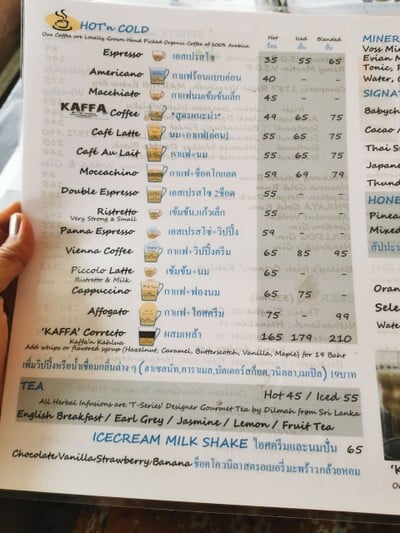 HOT'n COLD
Our Coffee are Locally Grown Hand Picked Organic Coffee of 100% Arabica
Hot Iced Blended
ร้อน เย็น ปั่น
Espresso เอสเปรสโซ 35 55 65
Americano กาแฟร้อนแบบอ่อน 40 -
Macchiato กาแฟนมเข้มข้นเล็ก 45 -
KAFFA Coffee *สูตรแนะนำ* 49 65 75
Café Latte นม+กาแฟ[อ่อน] 55 65 75
Café Au Lait กาแฟ+นม 55 65 75
Moccachino กาแฟ+ช็อกโกแลต 59 69 79
Double Espresso เอสเปรสโซ 2ช็อต 55 - -
Ristretto เข้มข้น,แก้วเล็ก 55 - -
Very Strong & Small
Panna Espresso เอสเปรสโซ+วิปปิ้ง 59
Vienna Coffee กาแฟ+วิปปิ้งครีม 65 85 95
Piccolo Latte เข้มข้น+นม 65 - -
Ristretto & Milk
Cappuccino กาแฟ+ฟองนม 65 75 -
Affogato กาแฟ+ไอศครีม 75 - 99
'KAFFA' Correcto ผสมเหล้า 165 179 210
Kaffa'n Kahlua
Add whips or flavored syrup (Hazelnut, Caramel, Butterscotch, Vanilla, Maple) for 19 Baht
เพิ่มวิปปิ้งหรือน้ำเชื่อมกลิ่นต่าง ๆ (ฮาเซลนัท,คาราเมล,บัตเตอร์สก็อต,วนิลลา,เมเปิล) 19บาท
TEA Hot 45 / Iced 55
All Herbal Infusions are 'T-Series' Designer Gourmet Tea by Dilmah from Sri Lanka
English Breakfast / Earl Grey / Jasmine / Lemon / Fruit Tea
ICECREAM MILK SHAKE ไอศครีมและนมปั่น 65
Chocolate/Vanilla/Strawberry/Banana ช็อคโควนิลาสตรอเบอรี่มะพร้าวกล้วยหอม
MINER
Voss Min
Evian M
Tonic,
Water,
SIGNA
Babych
Cacao /
Thai S
Japane
Thund
HONE
Pinea
Mixed
สับปะร
Oran
Sele
Wate
'K